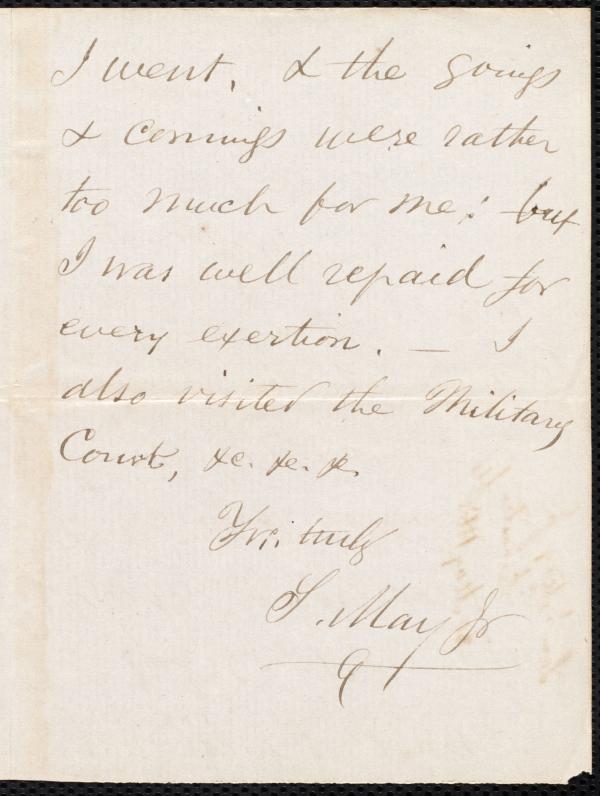 I went, & the goings
& comings were rather
too much for me; but
I was well repaid for
every exertion. — I
also visited the Military
Court, &c. &c. &c.
Yrs. truly
S. May Jr